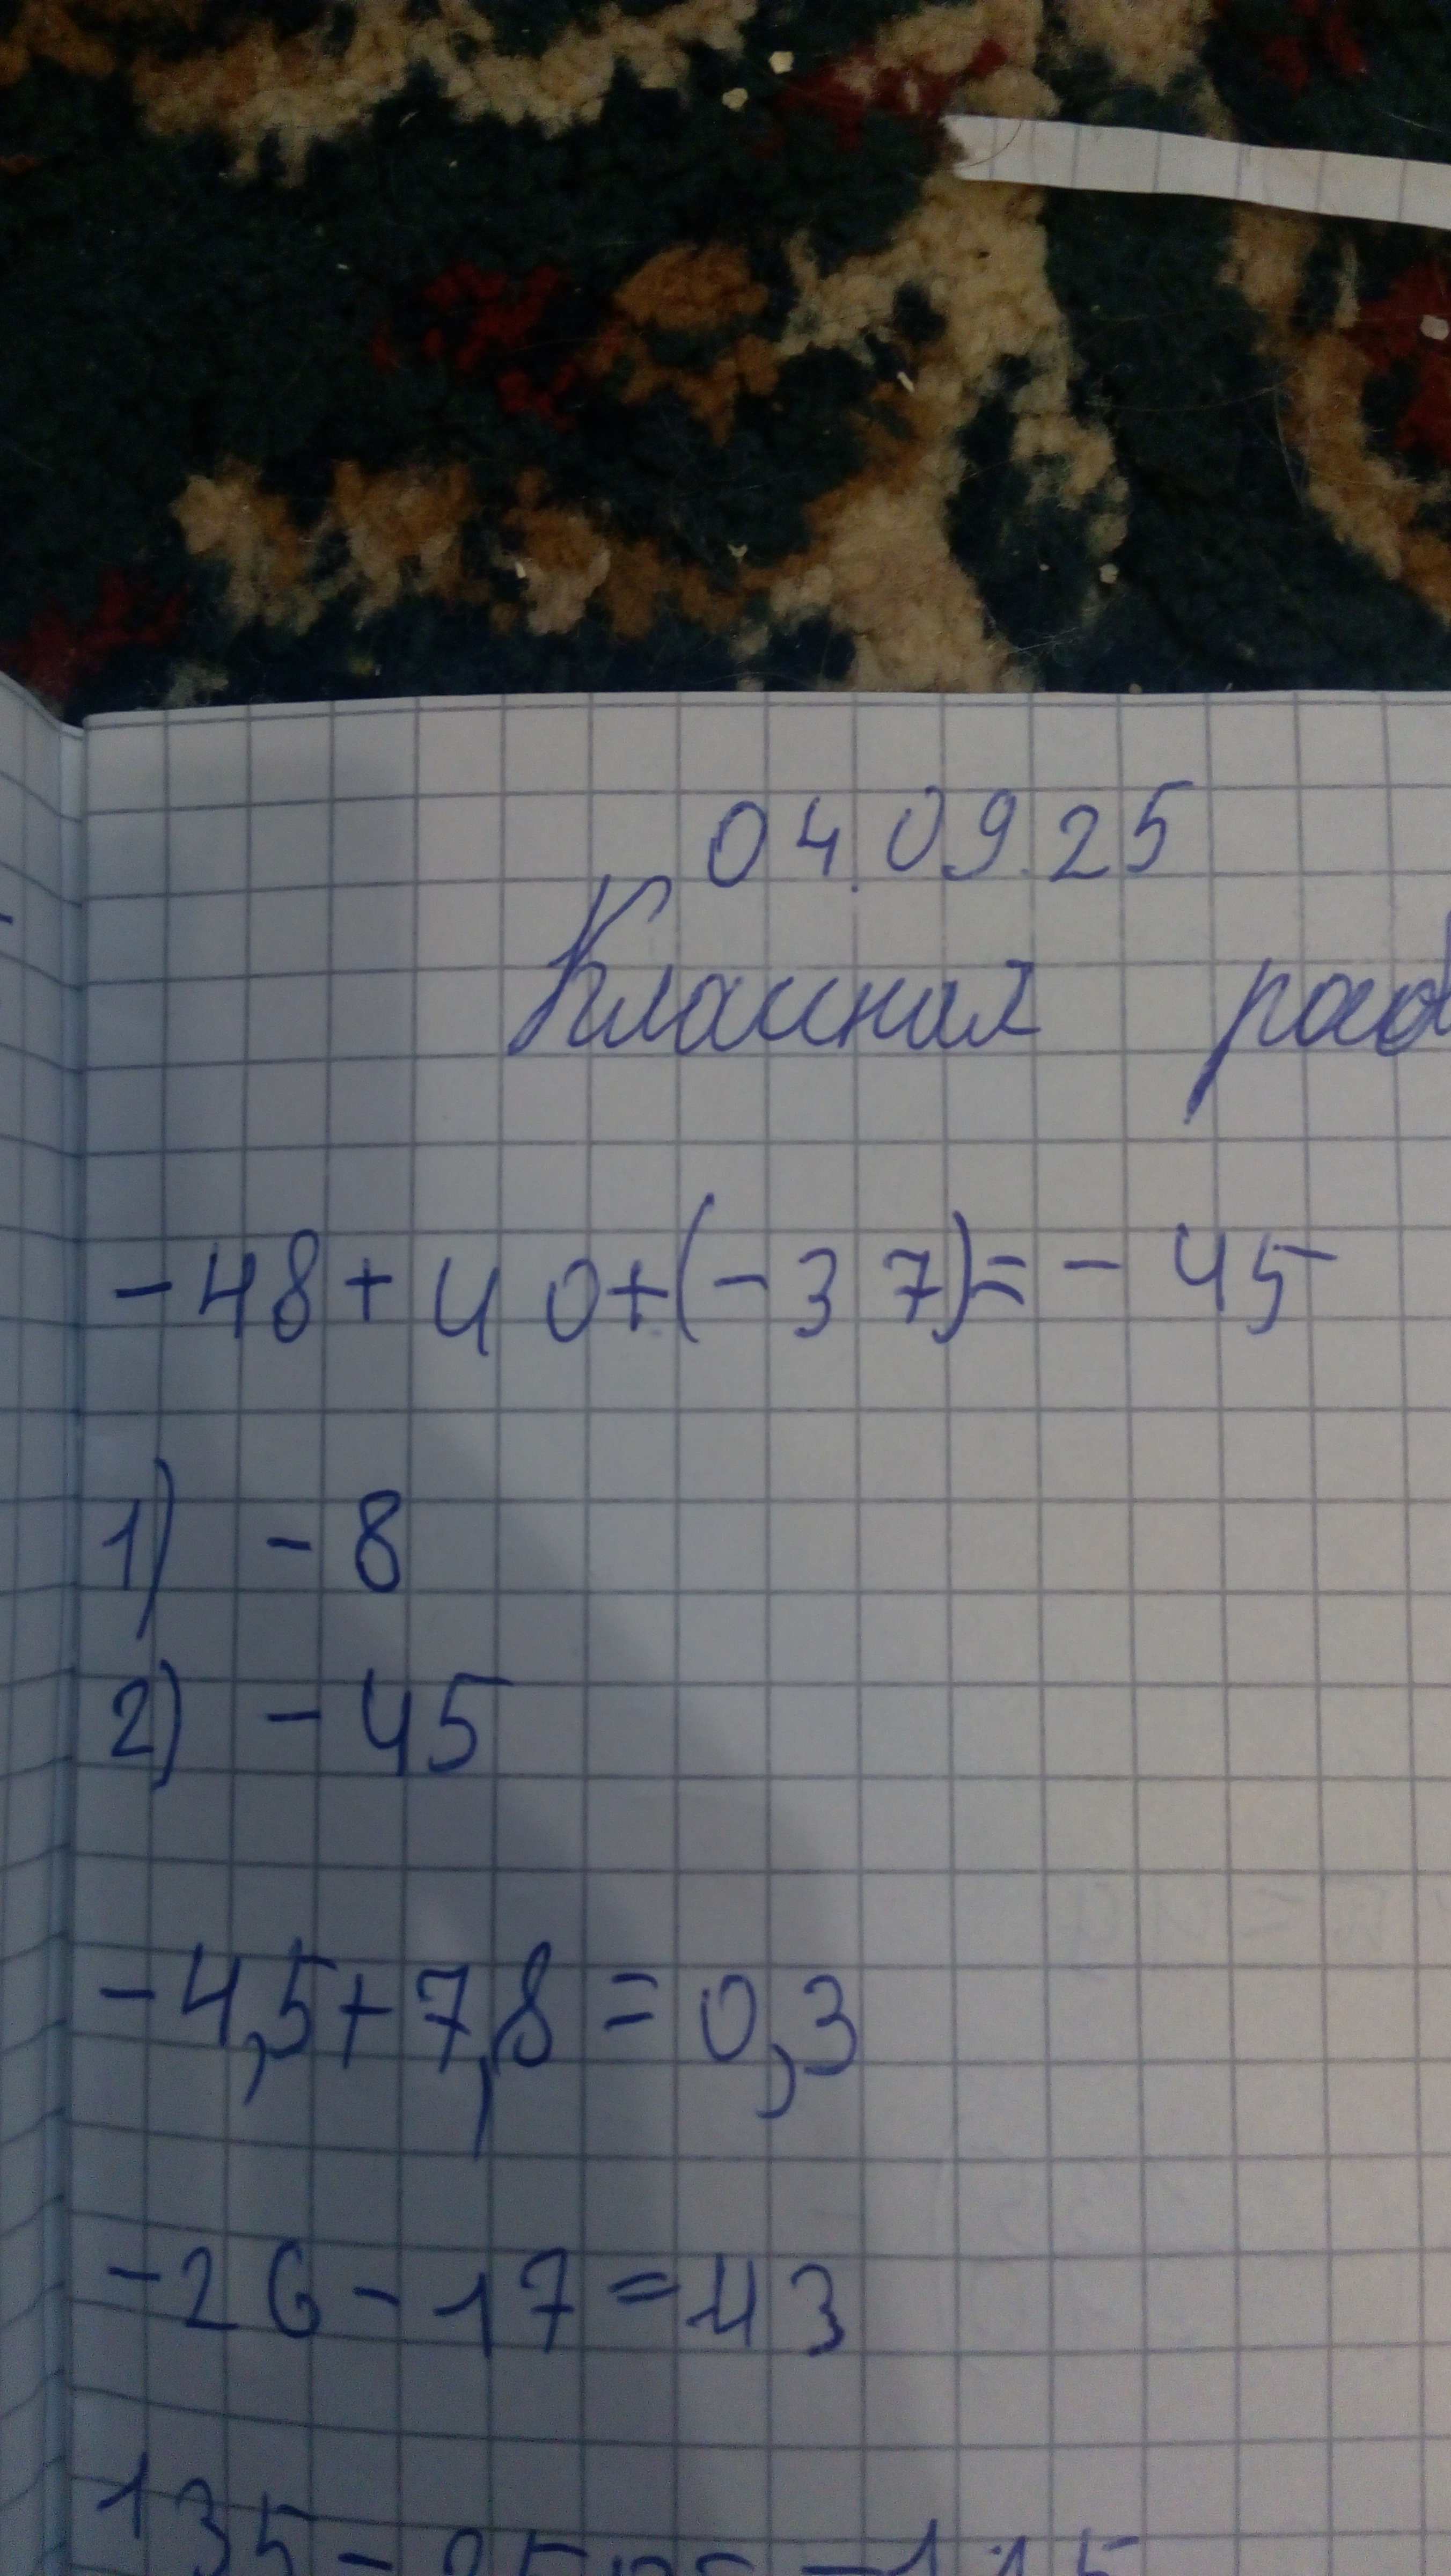 04.09.25
Классная
-48+40+(-37)=-45
1) -8
2) -45
-4,5+7,8=0,3
-26-17=43